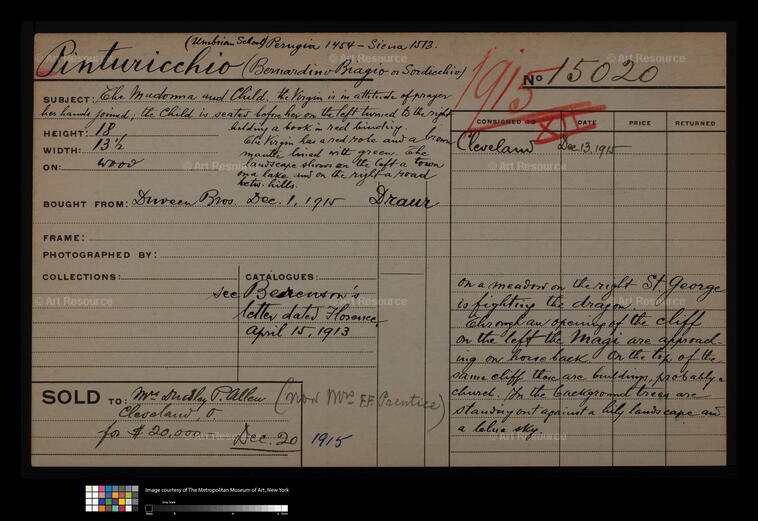 (Umbrian School) Perugia 1454 – Siena 1513.
Pinturicchio (Bernardino Biagio or Sordicchio)
1915
XII
No 15020
SUBJECT: The Madonna and Child. The Virgin is in attitude of prayer
her hands joined; the Child is seated before her on the left turned to the right
holding a book in red binding.
HEIGHT: 18
WIDTH: 13½
ON: wood
The Virgin has a red robe and a brown
mantle lined with green. The
landscape shows on the left a town
on a lake and on the right a road
betw. hills.
BOUGHT FROM: Duveen Bros. Dec. 1, 1915
FRAME:
PHOTOGRAPHED BY:
COLLECTIONS:
CATALOGUES:
see Berenson's
letter dated Florence,
April 15, 1913
SOLD TO: Mrs Dudley P. Allen (now Mrs F.F. Prentice)
Cleveland, O.
for $20,000 Dec. 20 1915
CONSIGNED TO DATE PRICE RETURNED
Cleveland Dec. 13, 1915
on a meadow on the right St. George
is fighting the dragon.
Through an opening of the cliff
on the left the Magi are approach-
ing on horseback. On the top of the
same cliff there are buildings, probably a
church. In the background trees are
standing out against a hilly landscape and
a blue sky.
© Art Resource
© Art Resource
© Art Resource
© Art Resource
© Art Resource
© Art Resource
© Art Resource
© Art Resource
© Art Resource
© Art Resource
© Art Resource
© Art Resource
Image courtesy of The Metropolitan Museum of Art, New York